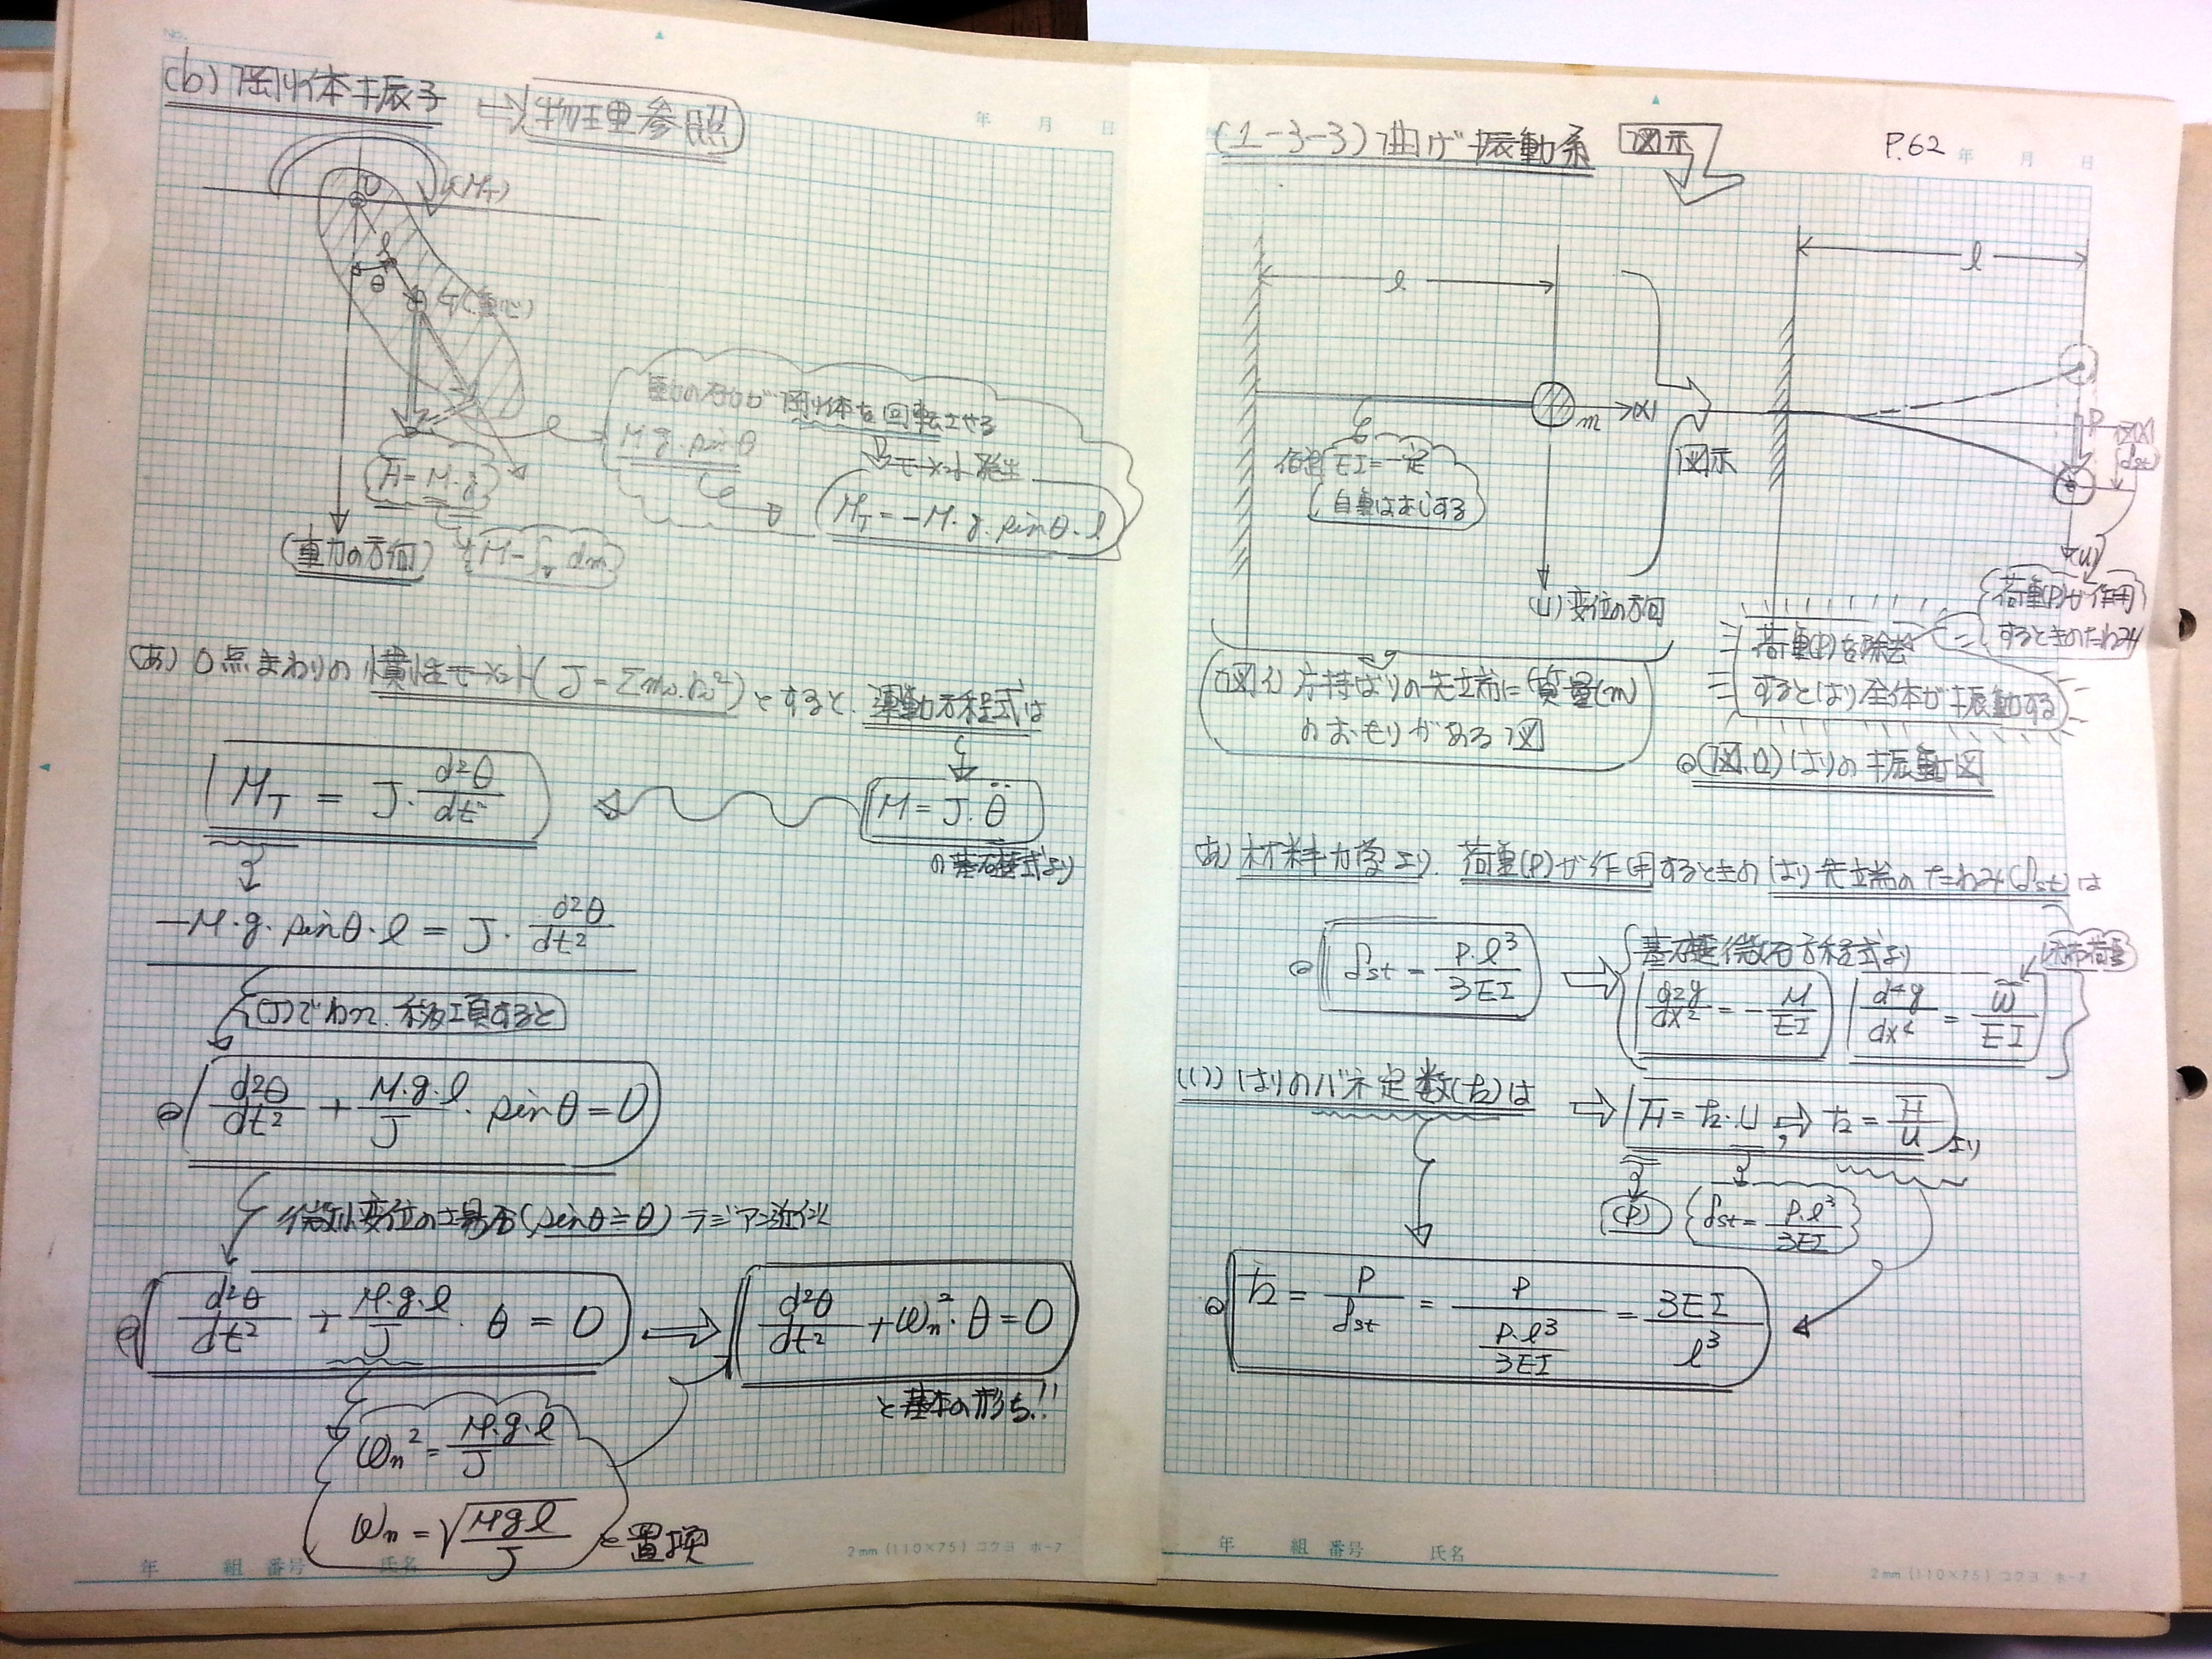 No.
年 月 日
(b) 剛体振子 ⇒ 物理参照
O
(M_T)
l
θ
G(重心)
重力の分力が剛体を回転させる
M・g・sinθ
モーメント発生
F=M・g
M_T=-M・g・sinθ・l
(重力の方向)
M=∫_v dm
(あ) O点まわりの慣性モーメント(J=Σm_i・r_i²)とすると、運動方程式は
M_T = J・d²θ/dt²
M=J・θ̈
の基礎式より
-M・g・sinθ・l = J・d²θ/dt²
(J)でわって、移項すると
d²θ/dt² + M・g・l/J・sinθ=0
微小変位の場合(sinθ≒θ)ラジアン近似
d²θ/dt² + M・g・l/J・θ = 0 ⇒ d²θ/dt² +ωn²・θ=0
と基本の形ち!!
ωn²=M・g・l/J
ωn=√Mgl/J と置換
年 組 番号 氏名
2mm (110×75) コクヨ ホ-7
(1-3-3) 曲げ振動系 図示
P.62
年 月 日
l
l
m
(X)
P
(X)
(δst)
仮定 EI=一定
自重はなしする
図示
(U)
(U)変位の方向
荷重(P)が作用
するときのたわみ
荷重(P)を除去
するとはり全体が振動する
(図イ) 片持ばりの先端に質量(m)
のおもりがある図
(図.ロ) はりの振動図
(あ) 材料力学より、荷重(P)が作用するときのはり先端のたわみ(δst)は
δst=P・l³/3EI ⇒
基礎微分方程式より
分布荷重
d²y/dx² = -M/EI
d⁴y/dx⁴ = w/EI
(い) はりのバネ定数(k)は ⇒ F=k・U, ⇒ k=F/U より
(P)
δst=P・l³/3EI
k = P/δst = P/(P・l³/3EI) = 3EI/l³
年 組 番号 氏名
2mm (110×75) コクヨ ホ-7